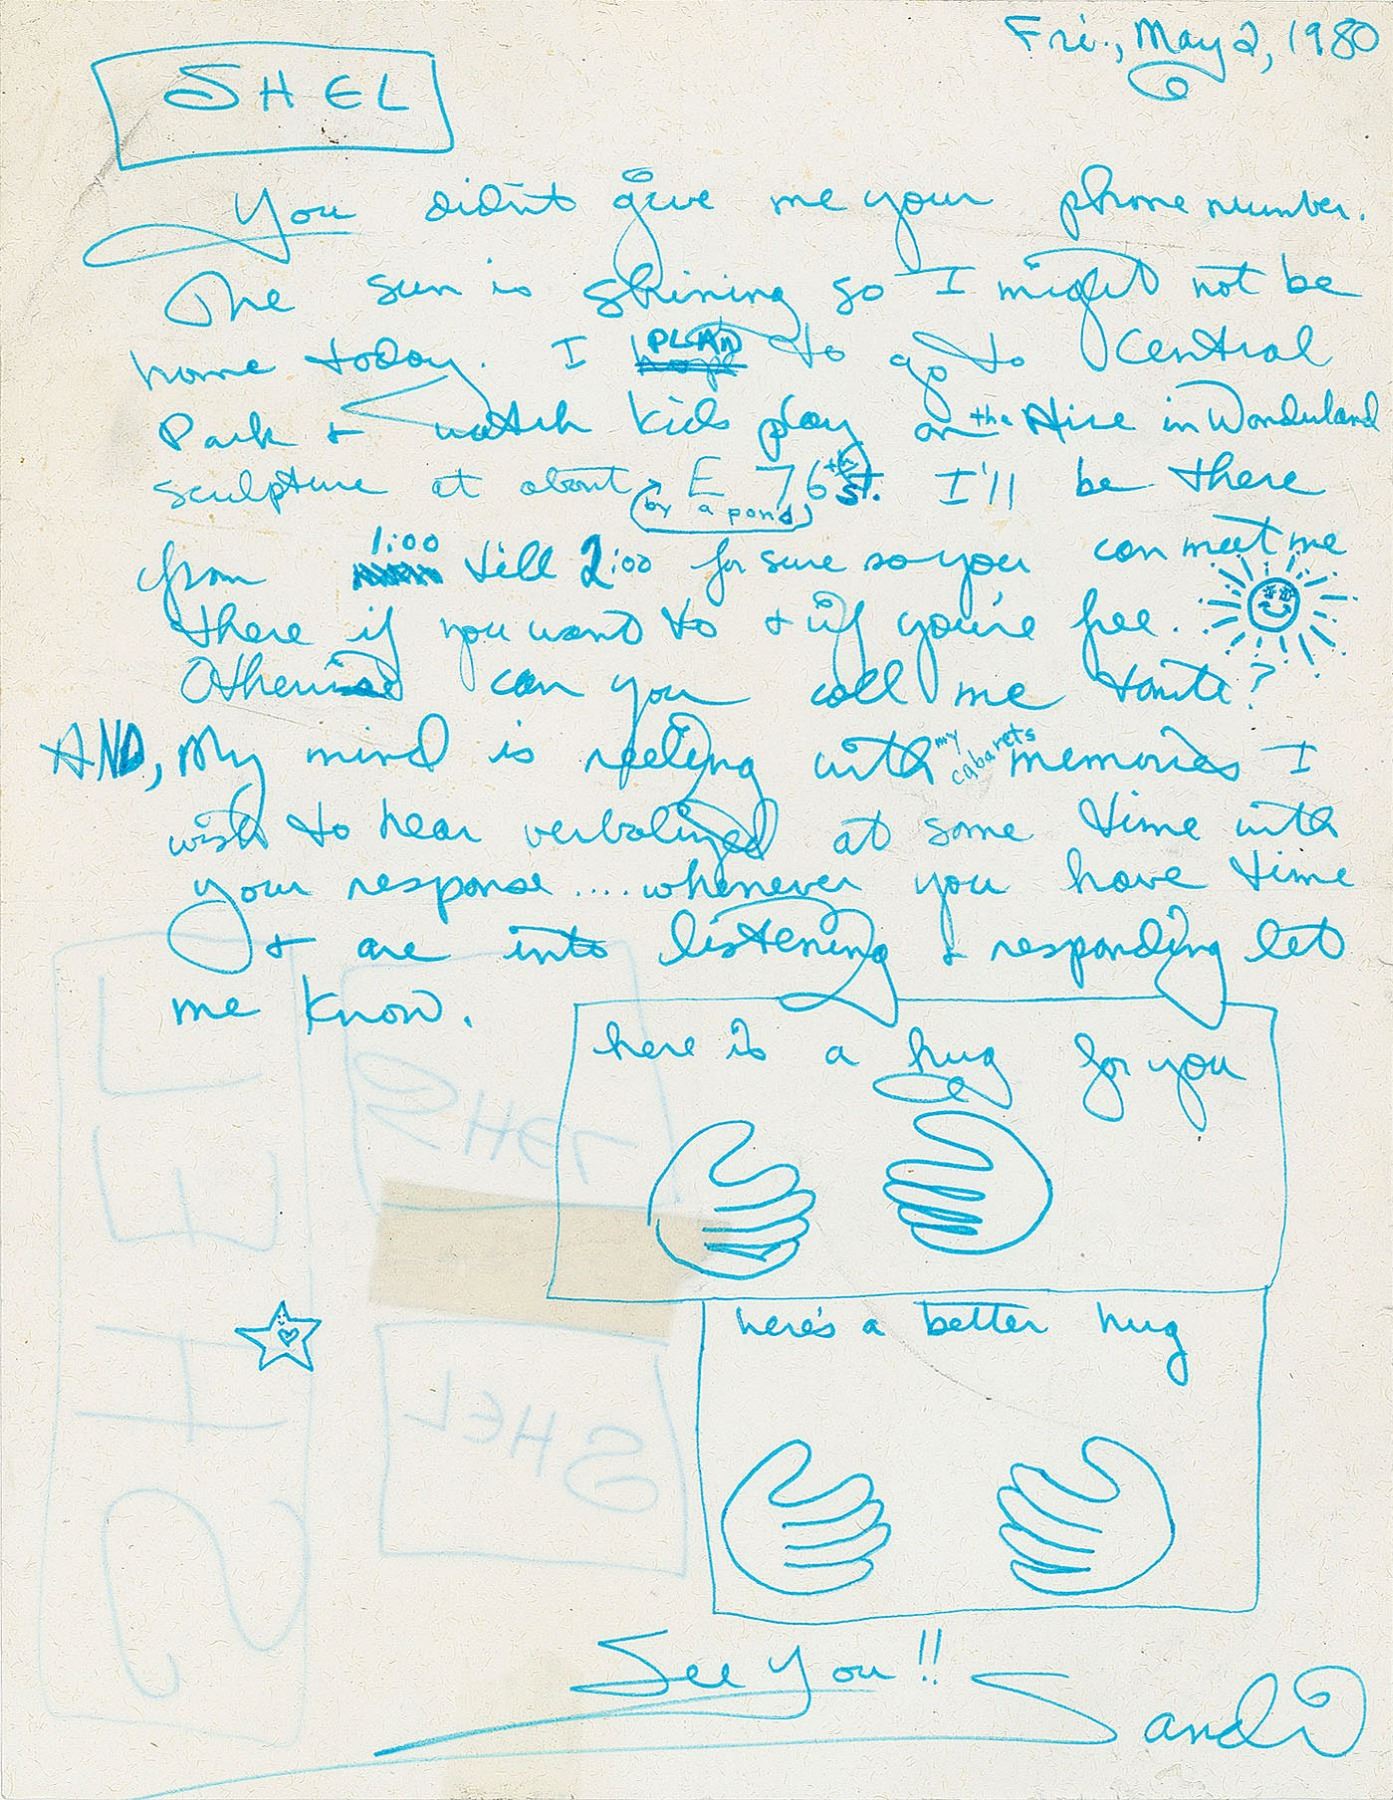 Fri., May 2, 1980
SHEL
You didn't give me your phone number.
The sun is shining so I might not be
home today. I PLAN to go to Central
Park & watch kids play on the Alice in Wonderland
sculpture at about E 76th St. I'll be there
(by a pond)
from 1:00 till 2:00 for sure so you can meet me
there if you want to & if you're free.
can you call me tonite?
AND, My mind is reeling with my cabarets memories I
wish to hear verbalized at some time with
your response.... whenever you have time
& are into listening & responding let
me know.
here is a hug for you
here's a better hug
SHEL
SHEL
SHEL
See you!!
Sandi